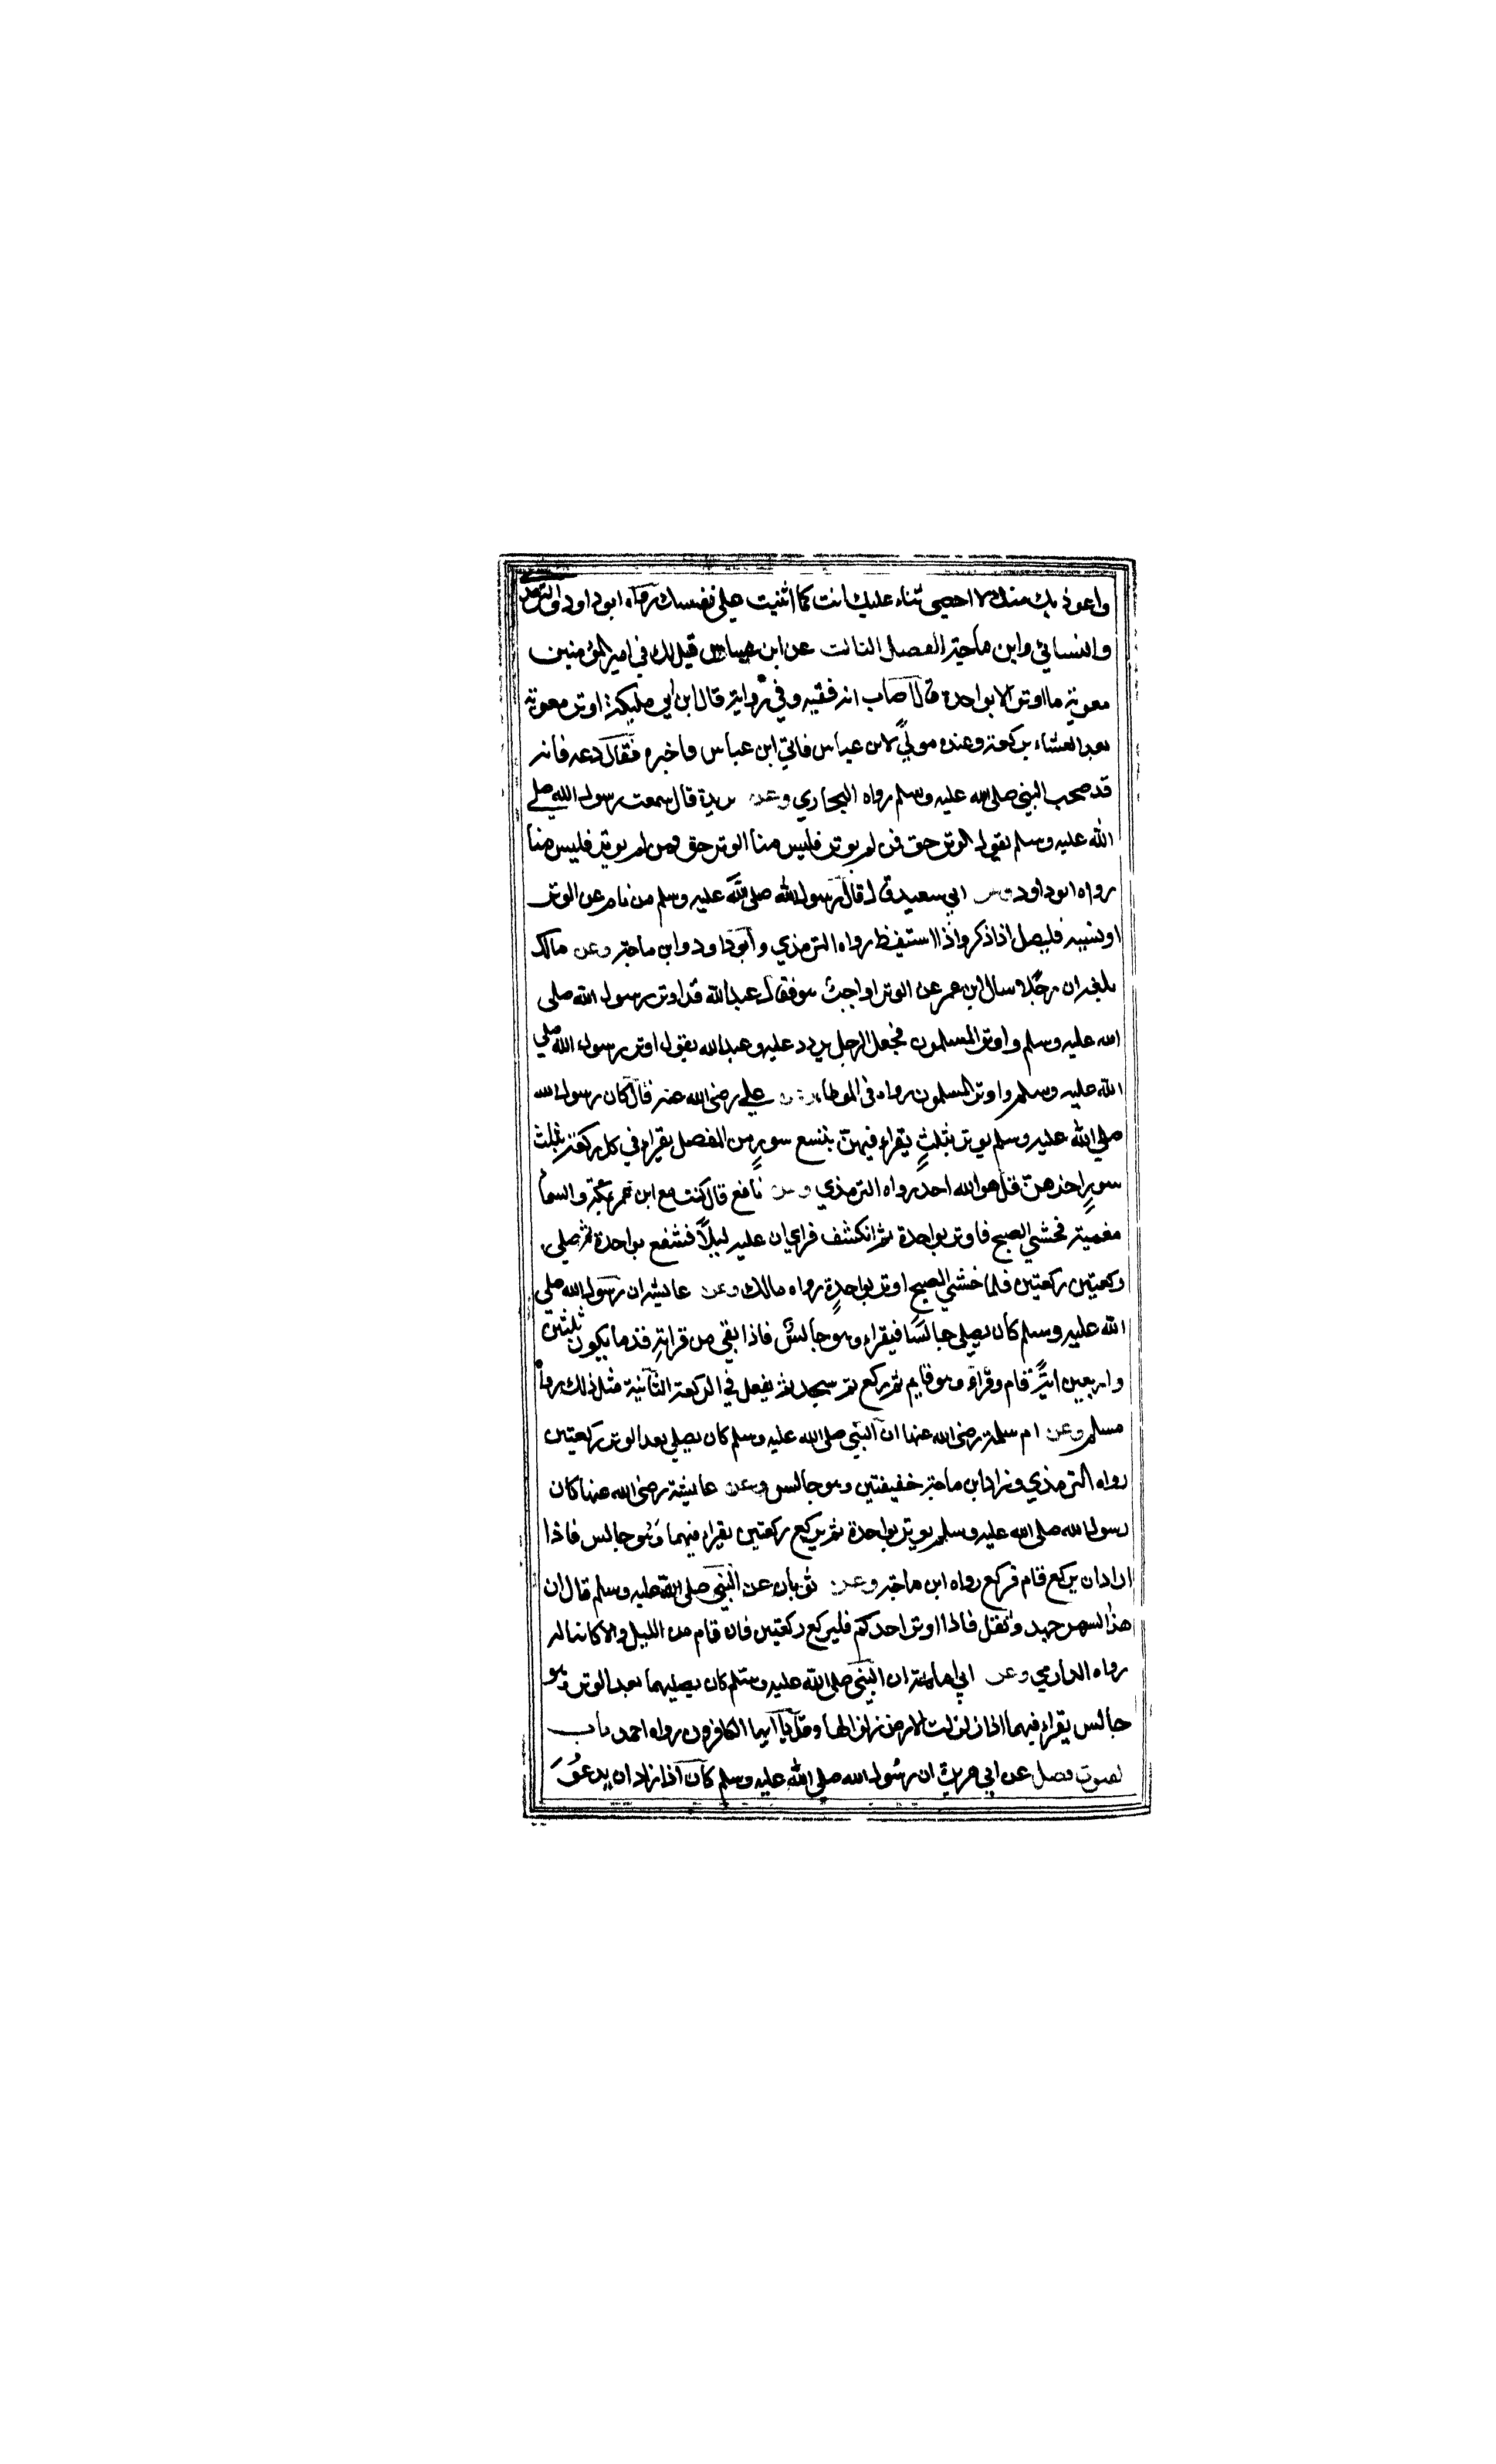 واعوذ بك منك لا احصي ثناء عليك انت كما اثنيت علي نفسك رواه ابوداود والترمذي
والنسائي وابن ماجة الفصل الثالث عن ابن عباس قيل لك في امير المؤمنين
معوية ما اوتر الا بواحدة قال اصاب انه فقيه وفي رواية قال ابن ابي مليكة اوتر معوية
بعد العشاء بركعة وعنده مولي لابن عباس فاتي ابن عباس فاخبره فقال دعه فانه
قد صحب النبي صلى الله عليه وسلم رواه البخاري وعن بريدة قال سمعت رسول الله صلى
الله عليه وسلم يقول الوتر حق فمن لم يوتر فليس منا الوتر حق فمن لم يوتر فليس منا
رواه ابوداود وعن ابي سعيد قال قال رسول الله صلى الله عليه وسلم من نام عن الوتر
او نسيه فليصل اذا ذكر واذا استيقظ رواه الترمذي وابوداود وابن ماجة وعن مالك
بلغه ان رجلا سال ابن عمر عن الوتر اواجب هو فقال عبد الله قد اوتر رسول الله صلى
الله عليه وسلم واوتر المسلمون فجعل الرجل يردد عليه وعبد الله يقول اوتر رسول الله صلي
الله عليه وسلم واوتر المسلمون رواه في الموطاء وعن علي رضى الله عنه قال كان رسول الله
صلي الله عليه وسلم يوتر بثلث يقراء فيهن بتسع سور من المفصل يقراء في كل ركعة بثلث
سور اخرهن قل هو الله احد رواه الترمذي وعن نافع قال كنت مع ابن عمر بمكة والسما
مغمية فخشي الصبح فاوتر بواحدة ثم انكشف فراي ان عليه ليلا فشفع بواحدة ثم صلى
ركعتين ركعتين فلما خشي الصبح اوتر بواحدة رواه مالك وعن عايشة ان رسول الله صلي
الله عليه وسلم كان يصلي جالسا فيقراء وهو جالس فاذا بقي من قراته قدر ما يكون ثلثين
واربعين اية قام وقراء وهو قايم ثم ركع ثم سجد ثم يفعل في الركعة الثانية مثل ذلك رواه
مسلم وعن ام سلمة رضى الله عنها ان النبي صلى الله عليه وسلم كان يصلي بعد الوتر ركعتين
رواه الترمذي وزاد ابن ماجة خفيفتين وهو جالس وعن عايشة رضى الله عنها كان
رسول الله صلى الله عليه وسلم يوتر بواحدة ثم يركع ركعتين يقراء فيهما وهو جالس فاذا
اراد ان يركع قام فركع رواه ابن ماجة وعن ثوبان عن النبي صلى الله عليه وسلم قال ان
هذا السهر جهد وثقل فاذا اوتر احدكم فليركع ركعتين فان قام من الليل والا كانتا له
رواه الدارمي وعن ابي امامة ان النبي صلى الله عليه وسلم كان يصليهما بعد الوتر وهو
جالس يقراء فيهما اذا زلزلت الارض زلزالها وقل يا ايها الكافرون رواه احمد باب
لقنوت فصل عن ابي هريرة ان رسول الله صلي الله عليه وسلم كان اذا اراد ان يدعو